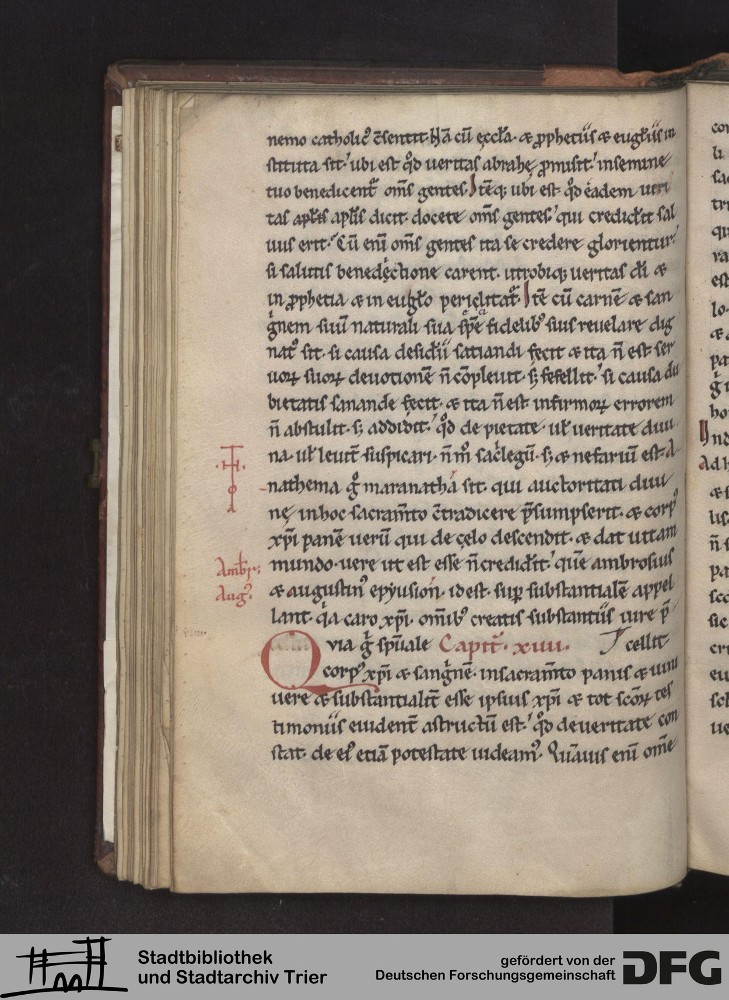 nemo catholic᷒ c̄sentit. Nā cū eccl̄a. ⁊ ꝓphetiis ⁊ eugl̄iis in
stituta sit. ubi est qd̄ ueritas abrahę ꝓmisit. in semine
tuo benedicent᷒ om̄s gentes. Itēq; ubi est qd̄ eadem ueri
tas apl̄is dicit. docete om̄s gentes. qui credid̄it sal
uus erit. Cū eni om̄s gentes ita se credere glorientur.
si salutis benedictione carent. utrobiq; ueritas dī ⁊
in ꝓphetia ⁊ in eugl̄o periclitat᷒. Itē cū carnē ⁊ san
gnem suū naturali sua spē fidelib᷒ suis reuelare dig
nat᷒ sit. si causa desidii satiandi fecit ⁊ ita n̄ est ser
uoꝝ suoꝝ deuotionē n̄ cōpleuit. s; fefellit. si causa du
bietatis sanande fecit. ⁊ ita n̄ est infirmoꝝ errorem
n̄ abstulit. s; addidit. qd̄ de pietate. ul̄ ueritate diui
na. ul̄ leuit̄ suspicari. n̄ m̊ sac̄legū. s; ⁊ nefariū est. A
nathema g̊ maranatha sit. qui auctoritati diui
nę in hoc sacram̄to c̄tradicere p̄sumpserit. ⁊ corp᷒
xp̄i panē uerū qui de cęlo descendit. ⁊ dat uitam
mundo. uere ut est esse n̄ credid̄it. quē ambrosius
⁊ augustin᷒ epyusion. id est. suꝑ substantialē appel
lant. qa caro xp̄i. om̄ib᷒ creatis substantiis iure p̄
Ambr̄;
Aug᷒.
Qvia g̊ sp̄uale Capit̄. xuii. cellit.
corp᷒ xp̄i ⁊ sangnē. in sacram̄to panis ⁊ uini
uere ⁊ substantialit̄ esse ipsius xp̄i ⁊ tot scōꝝ tes
timoniis euident̄ astructū est. qd̄ de ueritate con
stat. de ei᷒ etiā potestate uideam᷒. Quāuis eni om̄e
Stadtbibliothek
und Stadtarchiv Trier
gefördert von der
Deutschen Forschungsgemeinschaft
DFG